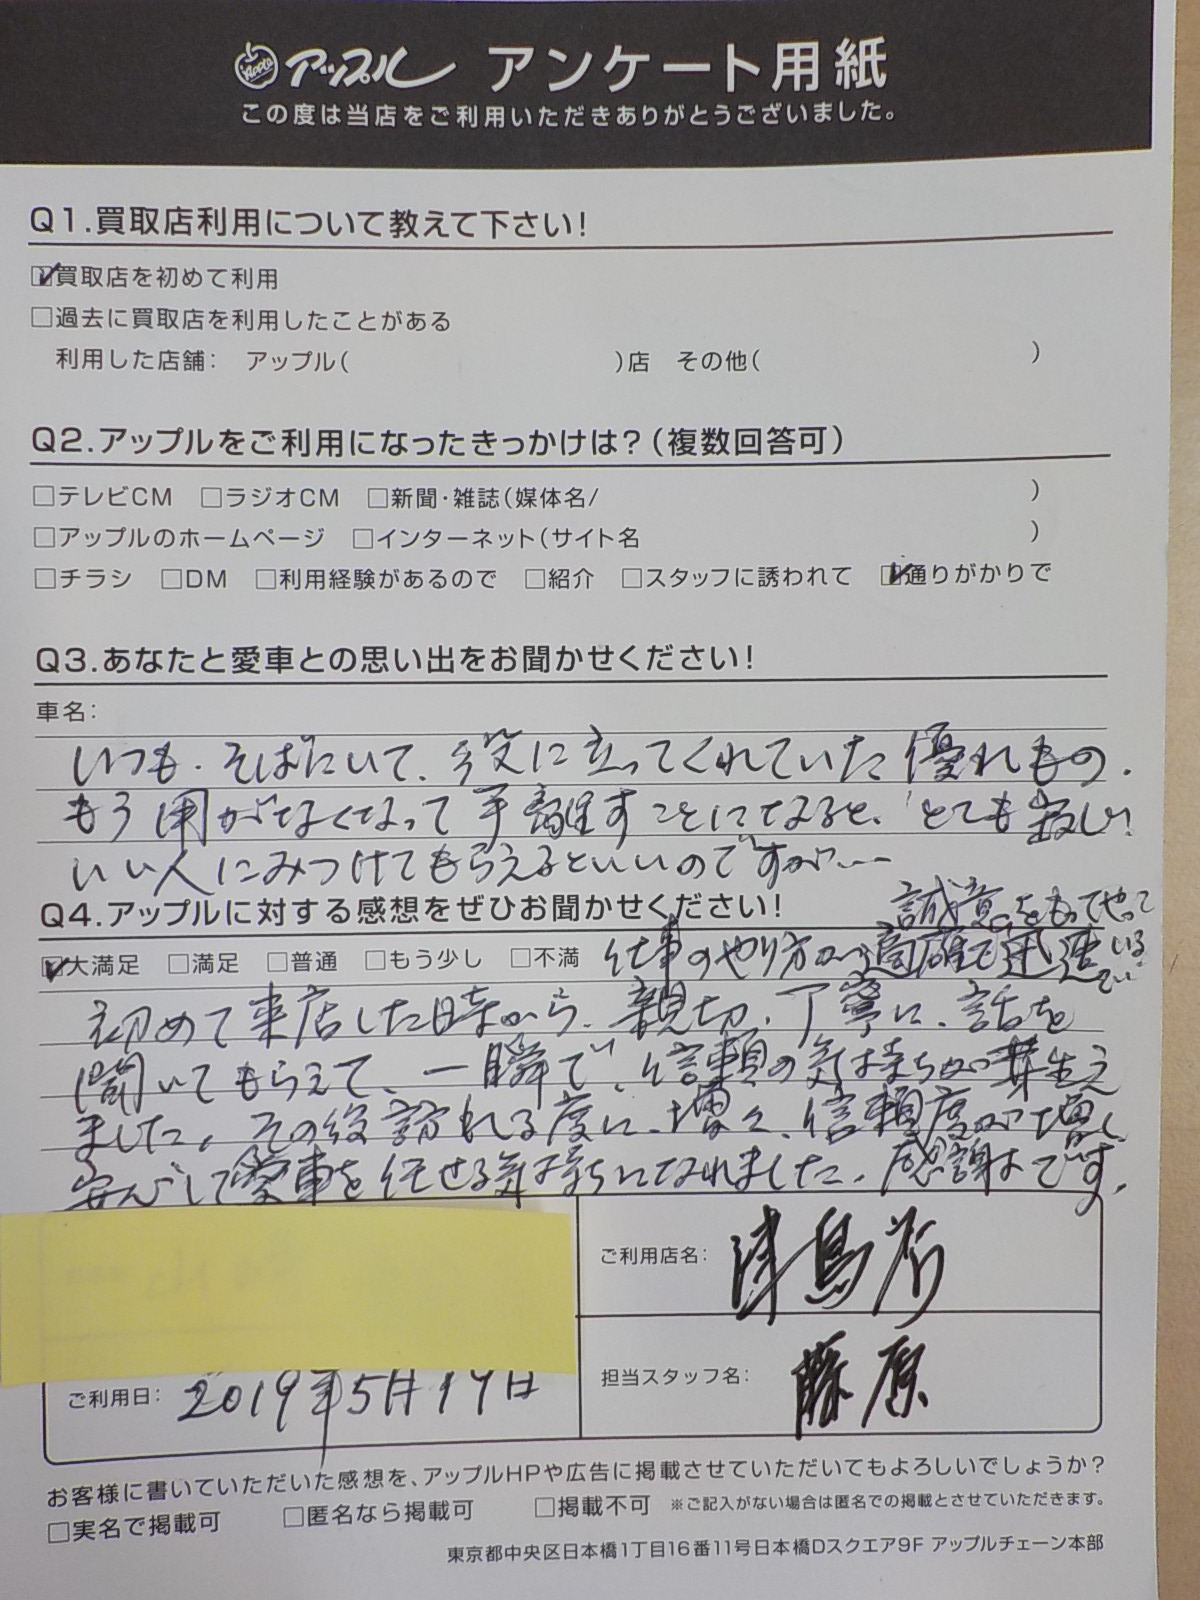 Apple アップル アンケート用紙
この度は当店をご利用いただきありがとうございました。
Q1.買取店利用について教えて下さい!
☑買取店を初めて利用
□過去に買取店を利用したことがある
利用した店舗: アップル( )店 その他( )
Q2.アップルをご利用になったきっかけは?(複数回答可)
□テレビCM □ラジオCM □新聞・雑誌(媒体名/ )
□アップルのホームページ □インターネット(サイト名 )
□チラシ □DM □利用経験があるので □紹介 □スタッフに誘われて ☑通りがかりで
Q3.あなたと愛車との思い出をお聞かせください!
車名:
いつも、そばにいて、役に立ってくれていた優れもの。
もう用がなくなって手離すことになると、とても寂しい
いい人にみつけてもらえるといいのですが……
Q4.アップルに対する感想をぜひお聞かせください!
☑大満足 □満足 □普通 □もう少し □不満
仕事のやり方が適確で迅速で
誠意をもってやっている
初めて来店した時から、親切、丁寧に、話を
聞いてもらえて、一瞬で、信頼の気持ちが芽生え
ました。その後訪れる度に、増々、信頼度が増し
安心して愛車を任せる気持ちになれました。感謝です。
ご利用店名: 津島店
担当スタッフ名: 藤原
ご利用日: 2019年5月19日
お客様に書いていただいた感想を、アップルHPや広告に掲載させていただいてもよろしいでしょうか?
□実名で掲載可 □匿名なら掲載可 □掲載不可 ※ご記入がない場合は匿名での掲載とさせていただきます。
東京都中央区日本橋1丁目16番11号日本橋Dスクエア9F アップルチェーン本部